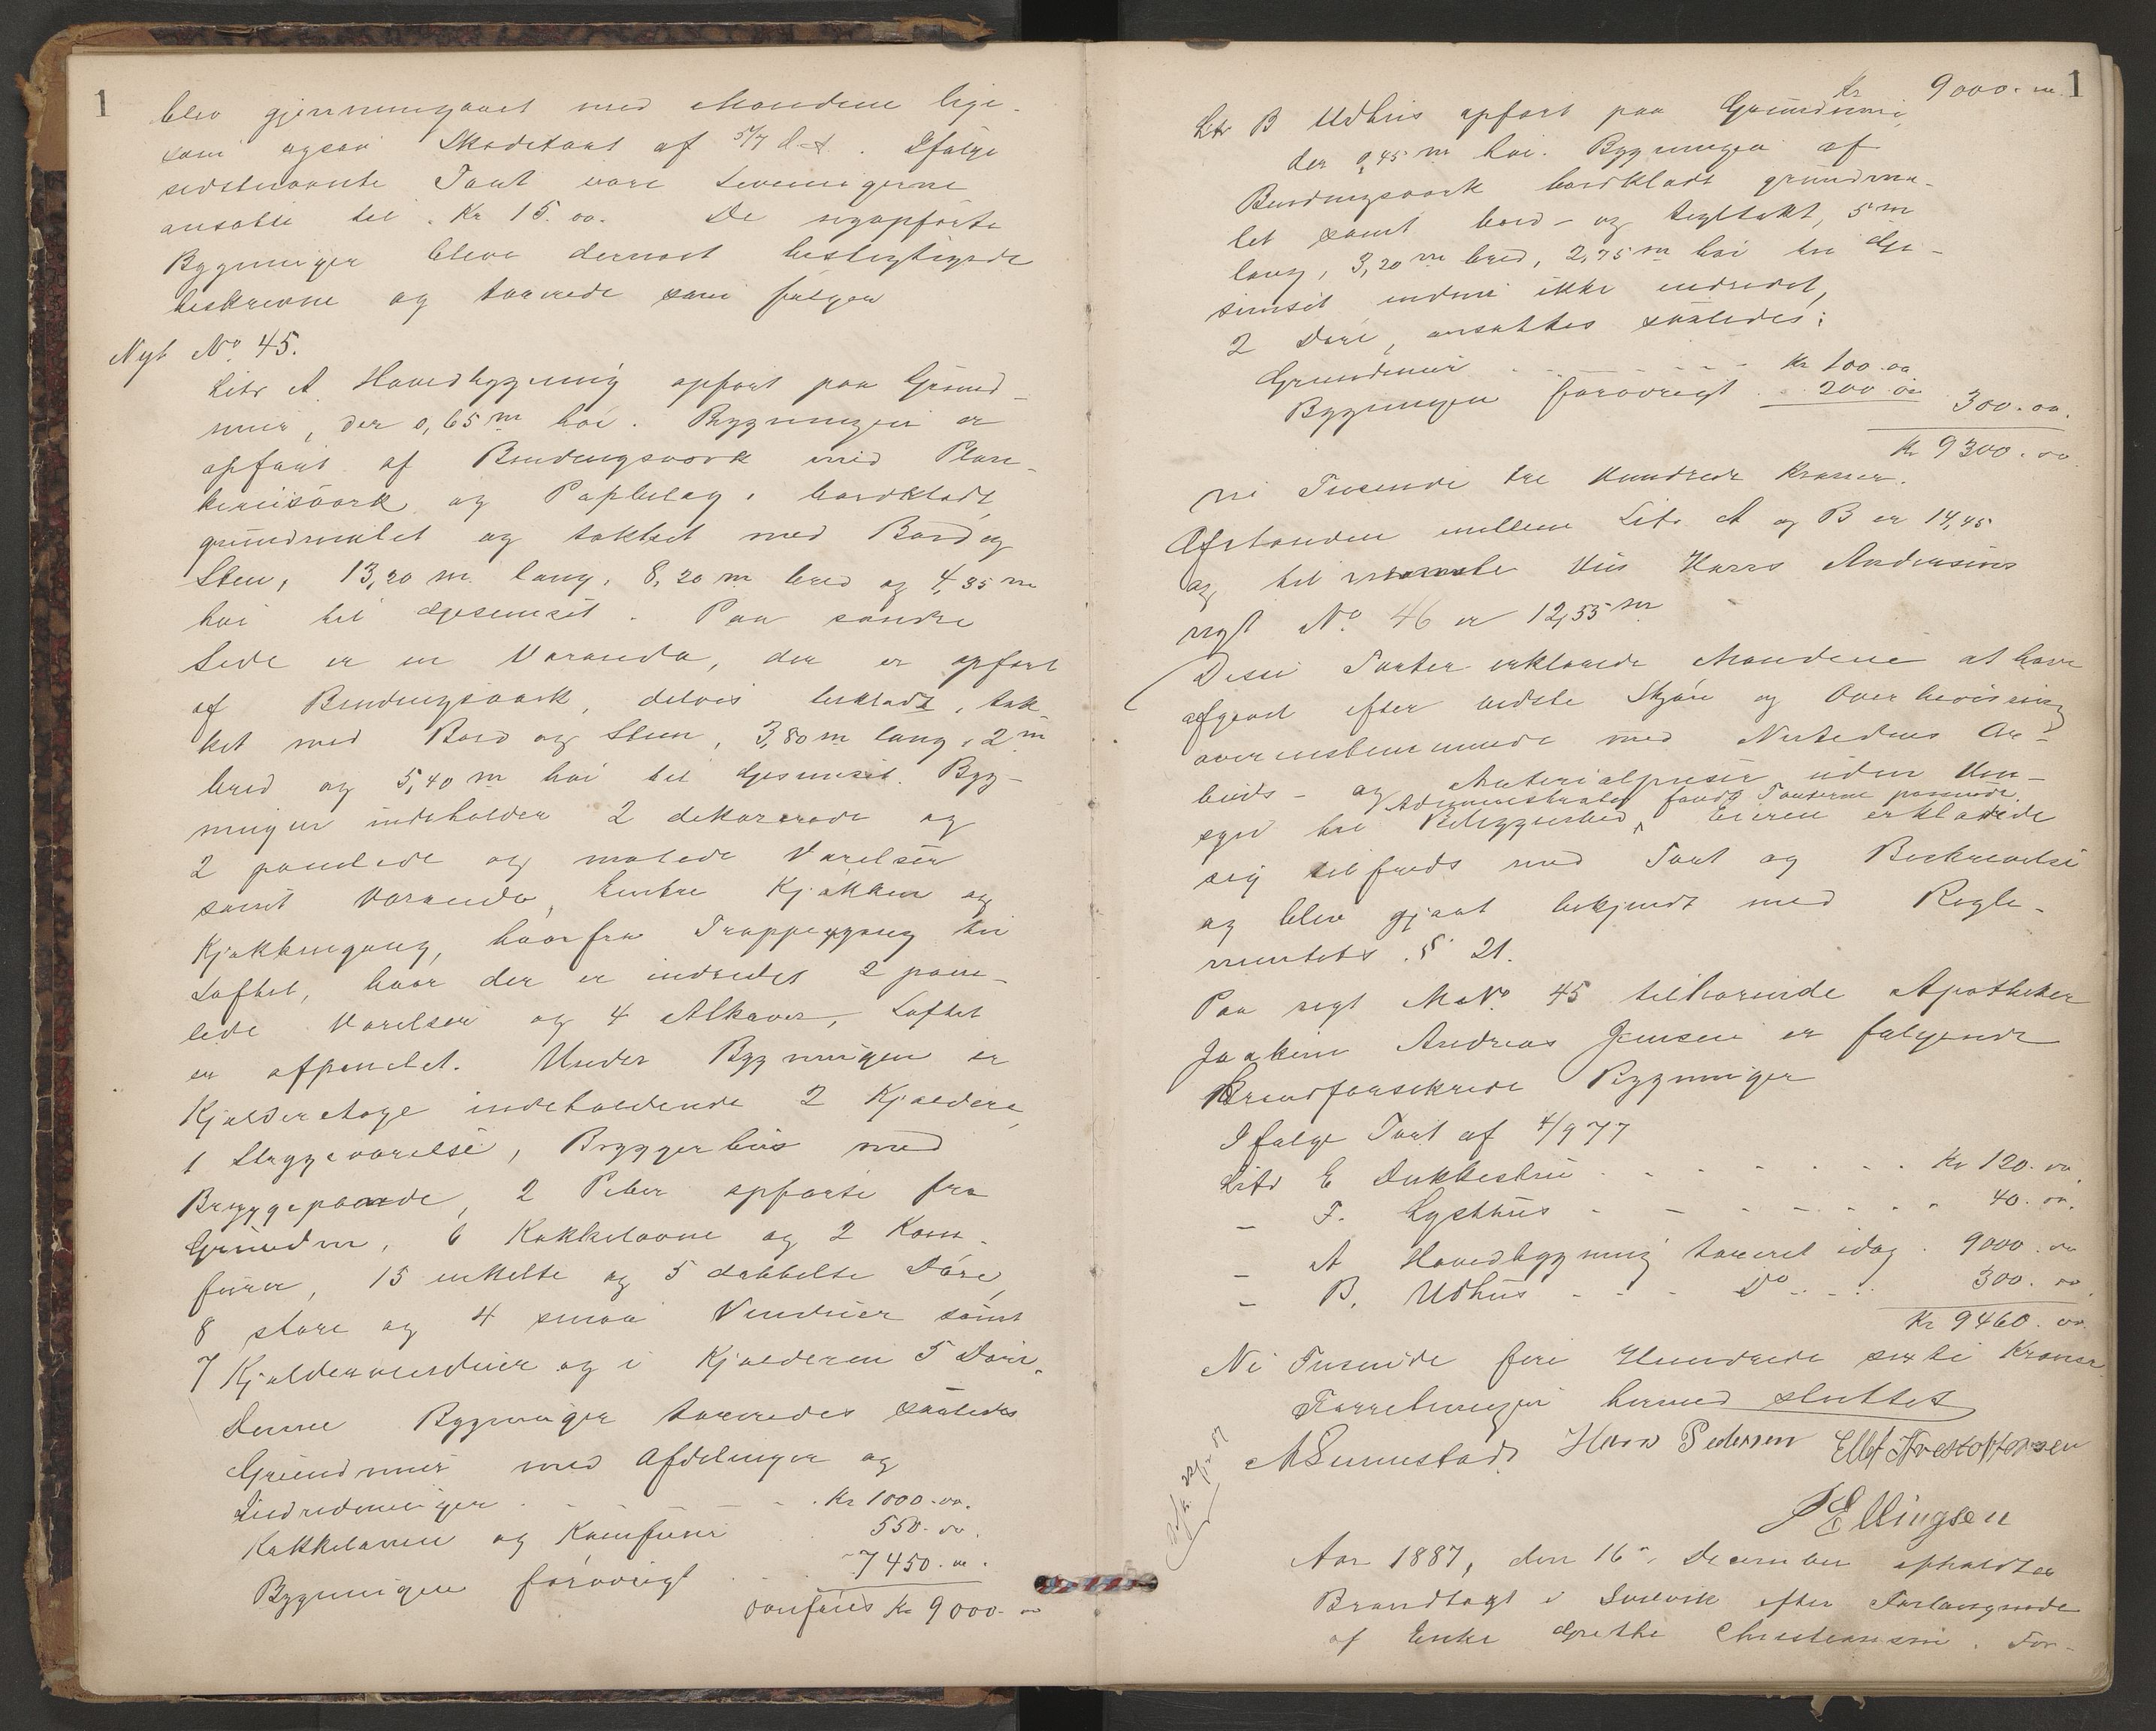 1
blev gjennemgaaet med Mændene lige-
som ogsaa Skadetaxt af 5/7 d. A. Ifølge
sidstnævnte Taxt vare Levningerne
ansatte til Kr 15.00. De nyopførte
Bygninger bleve dernæst besigtigede
beskrevne og taxerede som følger
Nyt No 45.
Litr A. Hovedbygning opført paa Grund-
mur, der 0,65 m høi. Bygningen er
opført af Bindingsværk med Plan-
keseisværk og Papbelag, bordklædt,
grundmalet og tækket med Bord og
Sten, 13,20 m lang, 8,20 m bred og 4,35 m
høi til Gesimset. Paa søndre
Side er en Veranda, der er opført
af Bindingsværk, delvis beklædt, tæk-
ket med Bord og Sten, 3,80 m lang, 2 m
bred og 5,40 m høi til Gesimset. Byg-
ningen indeholder 2 dekorerede og
2 panelede og malede Værelser
samt Veranda, Entre Kjøkken og
Kjøkkengang, hvorfra Trappegang til
Loftet, hvor der er indredet 2 pane-
lede Værelser og 4 Alkover, Loftet
er afpanelet. Under Bygningen er
Kjælderetage indeholdende 2 Kjældere,
1 Strygeværelse, Bryggerhus med
Bryggepande, 2 Piber opførte fra
Grunden, 6 Kakkelovne og 2 Kom-
furer, 15 enkelte og 5 dobbelte Døre,
8 store og 4 smaa Vinduer samt
7 Kjældervinduer og i Kjælderen 5 Døre.
Denne Bygningen taxeredes saaledes
Grundmur med Afdelinger og
Indredninger . . . Kr 1000.00.
Kakkelovne og Komfurer 550.00.
Bygningen forøvrigt . . 7450.00.
overføres Kr 9000.00
1
Kr 9000.00
Litr B Udhus opført paa Grundmur,
der 0,45 m høi. Bygningen af
Bindingsværk bordklædt grundma-
let samt bord- og tegltækt, 5 m
lang, 3,20 m bred, 2,75 m høi til Ge-
simset indeni ikke indredet,
2 Døre, ansattes saaledes:
Grundmur . . . . Kr 100.00
Bygningen forøvrigt . 200.00 300.00.
Kr 9300.00
ni Tusende tre Hundrede Kroner.
Afstanden mellem Litr. A og B er 14,45
og til nærmeste Hus Hans Andersens
nyt No 46 er 12,55 m
Disse Taxter erklærede Mændene at have
afgivet efter bedste Skjøn og Overbevisning
overensstemmende med Nutidens Ar-
beids- og Materialpriser uden Hen-
Administrator fandt Taxterne passende.
syn til Beliggenhed. Eieren erklærede
sig tilfreds med Taxt og Beskrivelse
og blev gjort bekjendt med Regle-
mentets § 21.
Paa nyt M.No 45 tilhørende Apotheker
Joakim Andreas Jensen er følgende
Brandforsikrede Bygninger
Ifølge Taxt af 4/9 77
Litr E Dukkestue . . . . . . Kr 120.00
– F. Lysthus - - - - - 40.00.
– A Hovedbygning taxeret idag . 9000.00
– B. Udhus - - - Do . . . 300.00.
Kr 9460.00.
Ni Tusinde fire Hundrede sexti Kroner
Forretningen hermed sluttet
Hans Pedersen
P Ellingsen
Aar 1887, den 16de December afholdtes
Brandtaxt i efter Forlangende
af Enke Grethe Christensen. For-